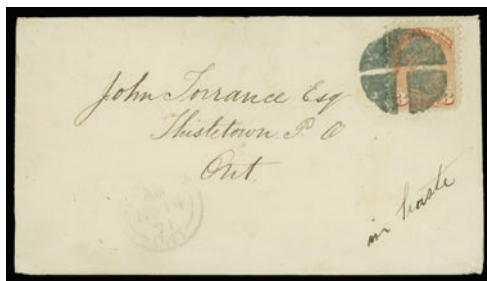 John Torrance Esq
Thisletown P. O
Ont.
in haste